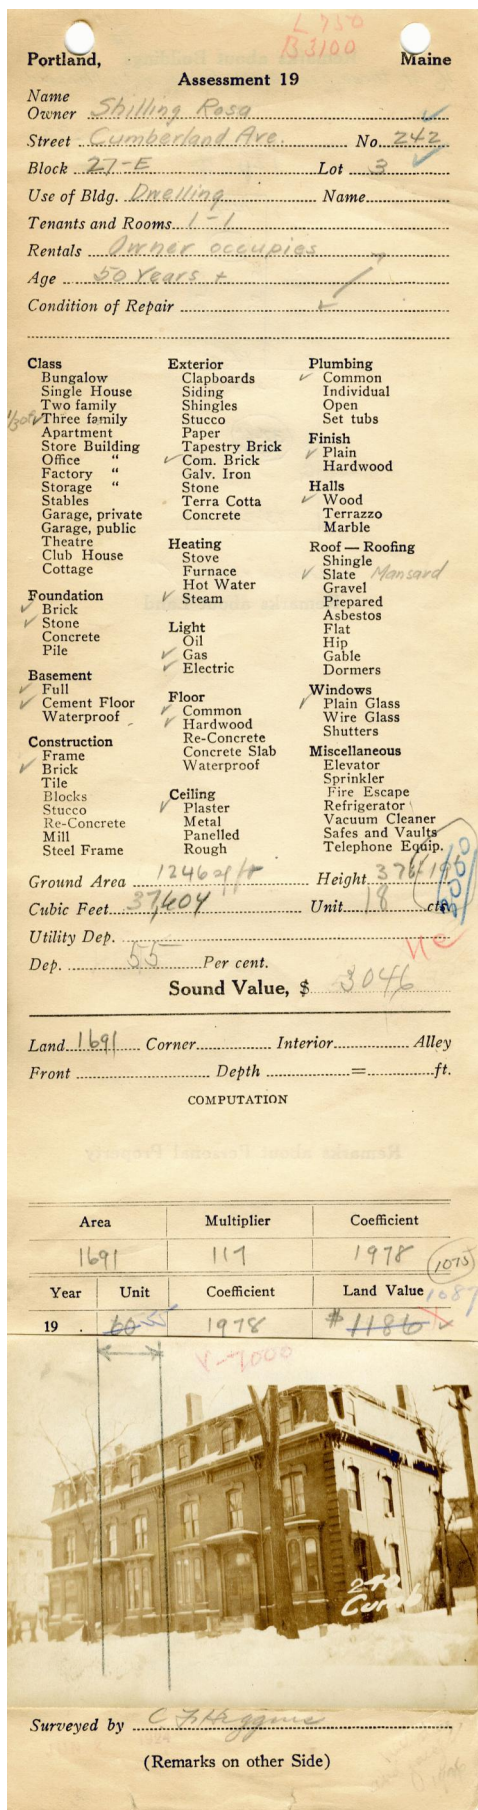 L 750
B 3100
Portland, Maine
Assessment 19
Name
Owner Shilling Rosa
Street Cumberland Ave. No. 242
Block 27-E Lot 3
Use of Bldg. Dwelling Name
Tenants and Rooms 1-1
Rentals Owner occupies
Age 50 Years +
Condition of Repair ✓
Class
Bungalow
Single House
Two family
✓ Three family
Apartment
Store Building
Office "
Factory "
Storage "
Stables
Garage, private
Garage, public
Theatre
Club House
Cottage
Foundation
✓ Brick
✓ Stone
Concrete
Pile
Basement
✓ Full
✓ Cement Floor
Waterproof
Construction
Frame
✓ Brick
Tile
Blocks
Stucco
Re-Concrete
Mill
Steel Frame
Exterior
Clapboards
Siding
Shingles
Stucco
Paper
Tapestry Brick
✓ Com. Brick
Galv. Iron
Stone
Terra Cotta
Concrete
Heating
Stove
Furnace
Hot Water
✓ Steam
Light
Oil
✓ Gas
✓ Electric
Floor
✓ Common
✓ Hardwood
Re-Concrete
Concrete Slab
Waterproof
Ceiling
✓ Plaster
Metal
Panelled
Rough
Plumbing
✓ Common
Individual
Open
Set tubs
Finish
✓ Plain
Hardwood
Halls
✓ Wood
Terrazzo
Marble
Roof — Roofing
Shingle
✓ Slate Mansard
Gravel
Prepared
Asbestos
Flat
Hip
Gable
Dormers
Windows
✓ Plain Glass
Wire Glass
Shutters
Miscellaneous
Elevator
Sprinkler
Fire Escape
Refrigerator
Vacuum Cleaner
Safes and Vaults
Telephone Equip.
Ground Area 1246 Height
Cubic Feet 37,404 Unit 18 cts.
3000
Utility Dep.
Dep. 55 Per cent.
Sound Value, $ 3046
Land 1691 Corner Interior Alley
Front Depth = ft.
COMPUTATION
Area Multiplier Coefficient
1691 117 1978
1075
Year Unit Coefficient Land Value 1087
19 . 60 55 1978 $1186
242
Cumb
Surveyed by C F Higgins
(Remarks on other Side)